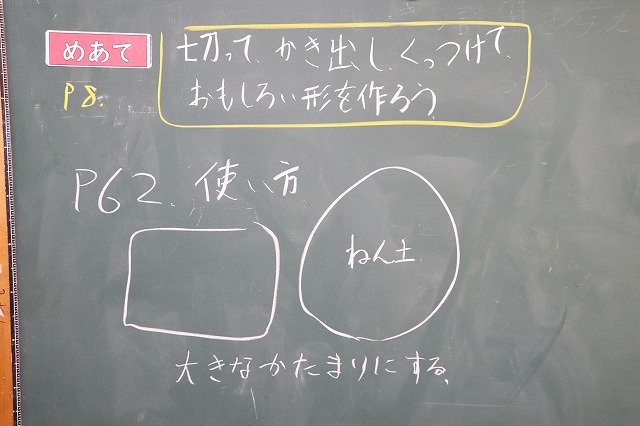 めあて
切って、かき出し、くっつけて、
おもしろい形を作ろう
P8.
P62. 使い方、
ねん土
大きなかたまりにする、